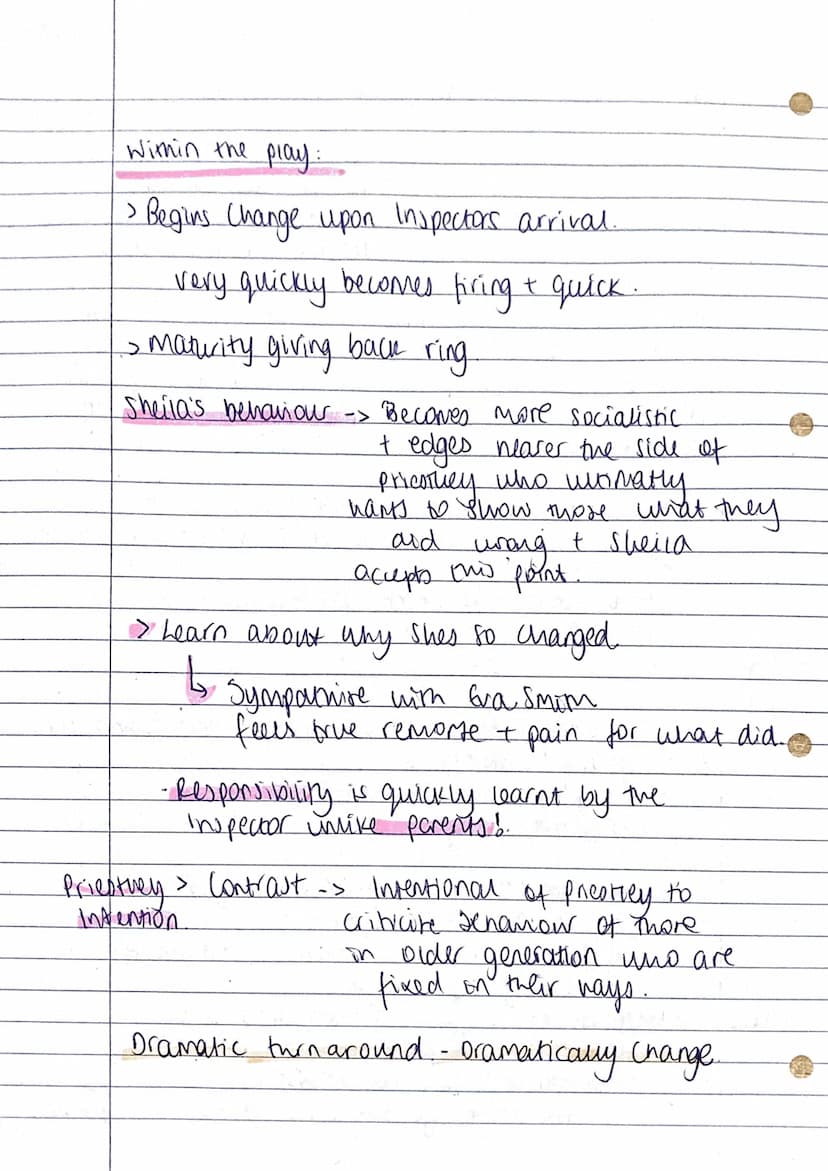 Within the play:
> Begins Change upon Inspectors arrival.
very quickly becomes firing + quick.
> Maturity giving back ring
Sheila's behaviour -> Becomes more socialistic
+ edges nearer the side of
priestley who ultimatly
wants to show those what they
did wrong + Sheila
accepts this point.
> Learn about why shes so changed
↳ Sympathise with Eva Smith
feels true remorse + pain for what did.
- Responsibility is quickly learnt by the
Inspector unlike parents!.
Priestley > Contrast -> Intentional of priestley to
Intention. criticise behaviour of those
in older generation who are
fixed on their ways.
Dramatic turnaround - Dramatically change.